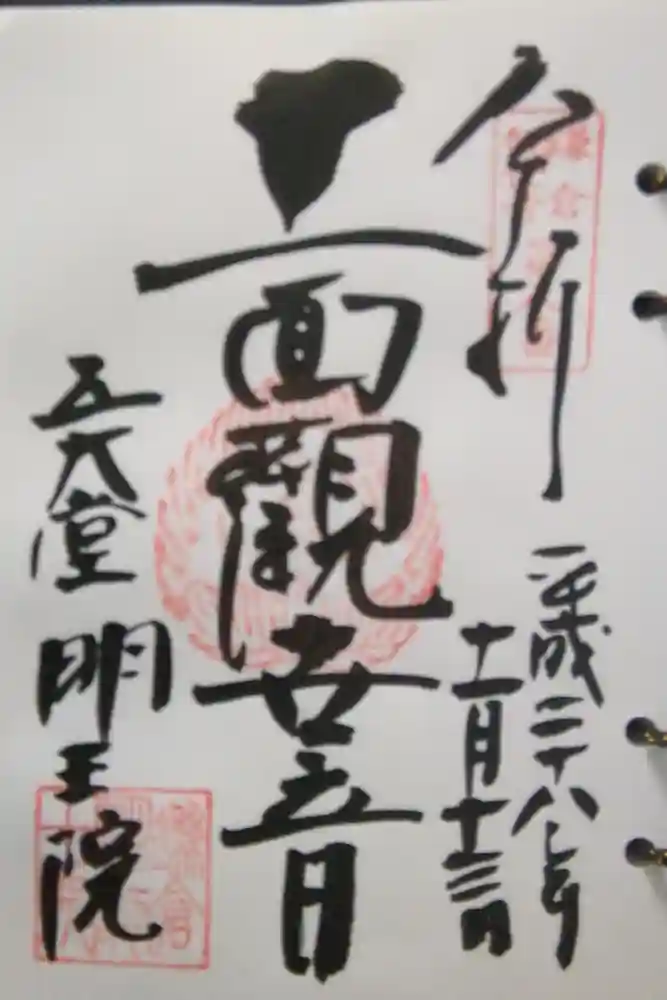 奉拝
平成二十八年
十一月十三日
十一面觀世音
五大堂 明王院